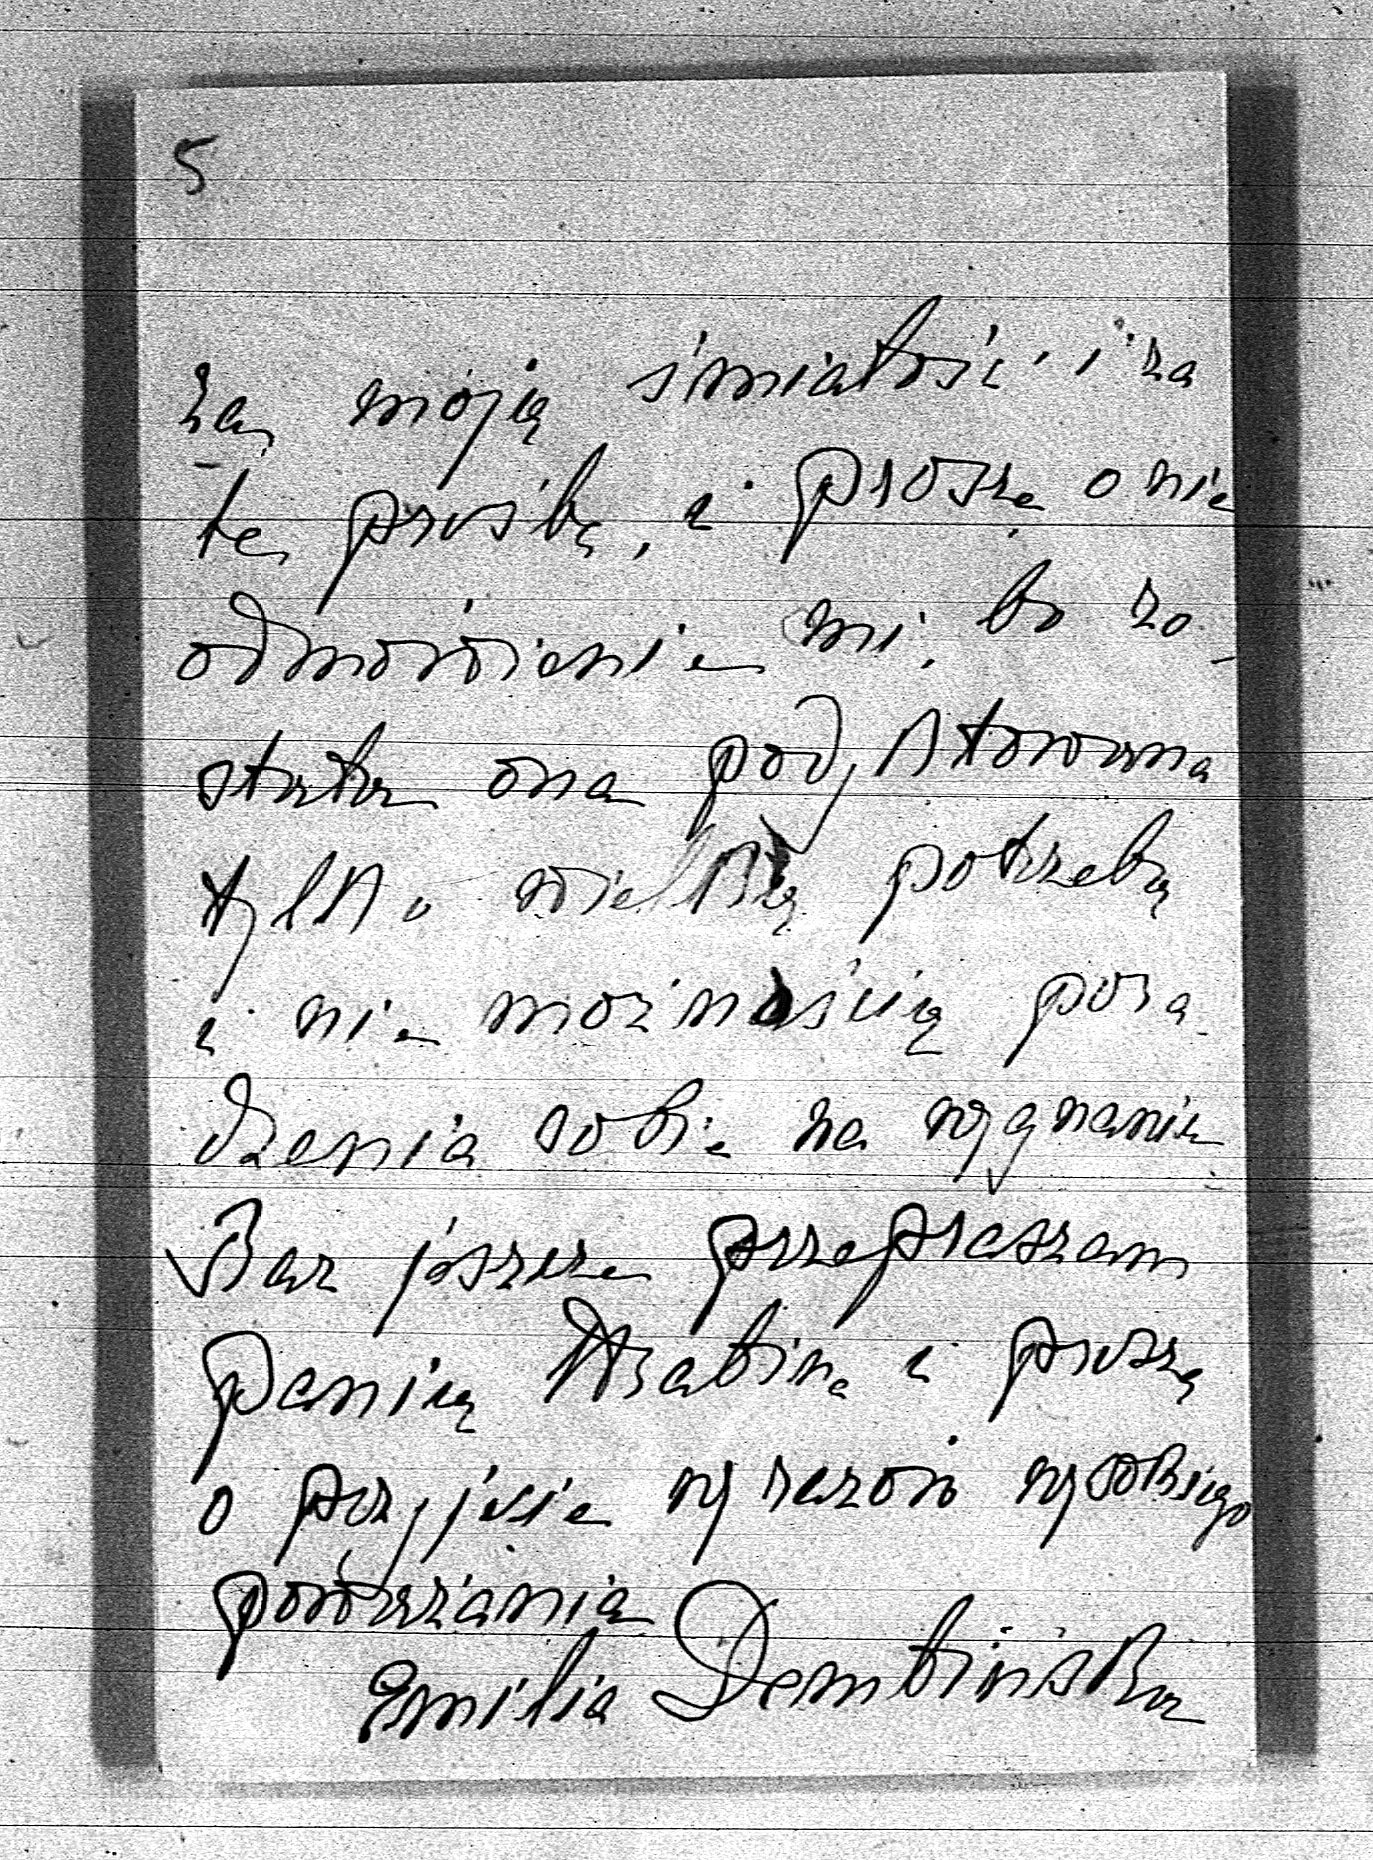 5
za moją śmiałość i za
tę prośbę, i proszę o nie
odmówienie mi, bo zo-
stała ona podyktowana
tylko wielką potrzebą
i nie możnością pora-
dzenia sobie na wygnaniu
Raz jeszcze przepraszam
Panią Hrabinę i proszę
o przyjęcie wyrazów wysokiego
poważania
Emilia Dembińska